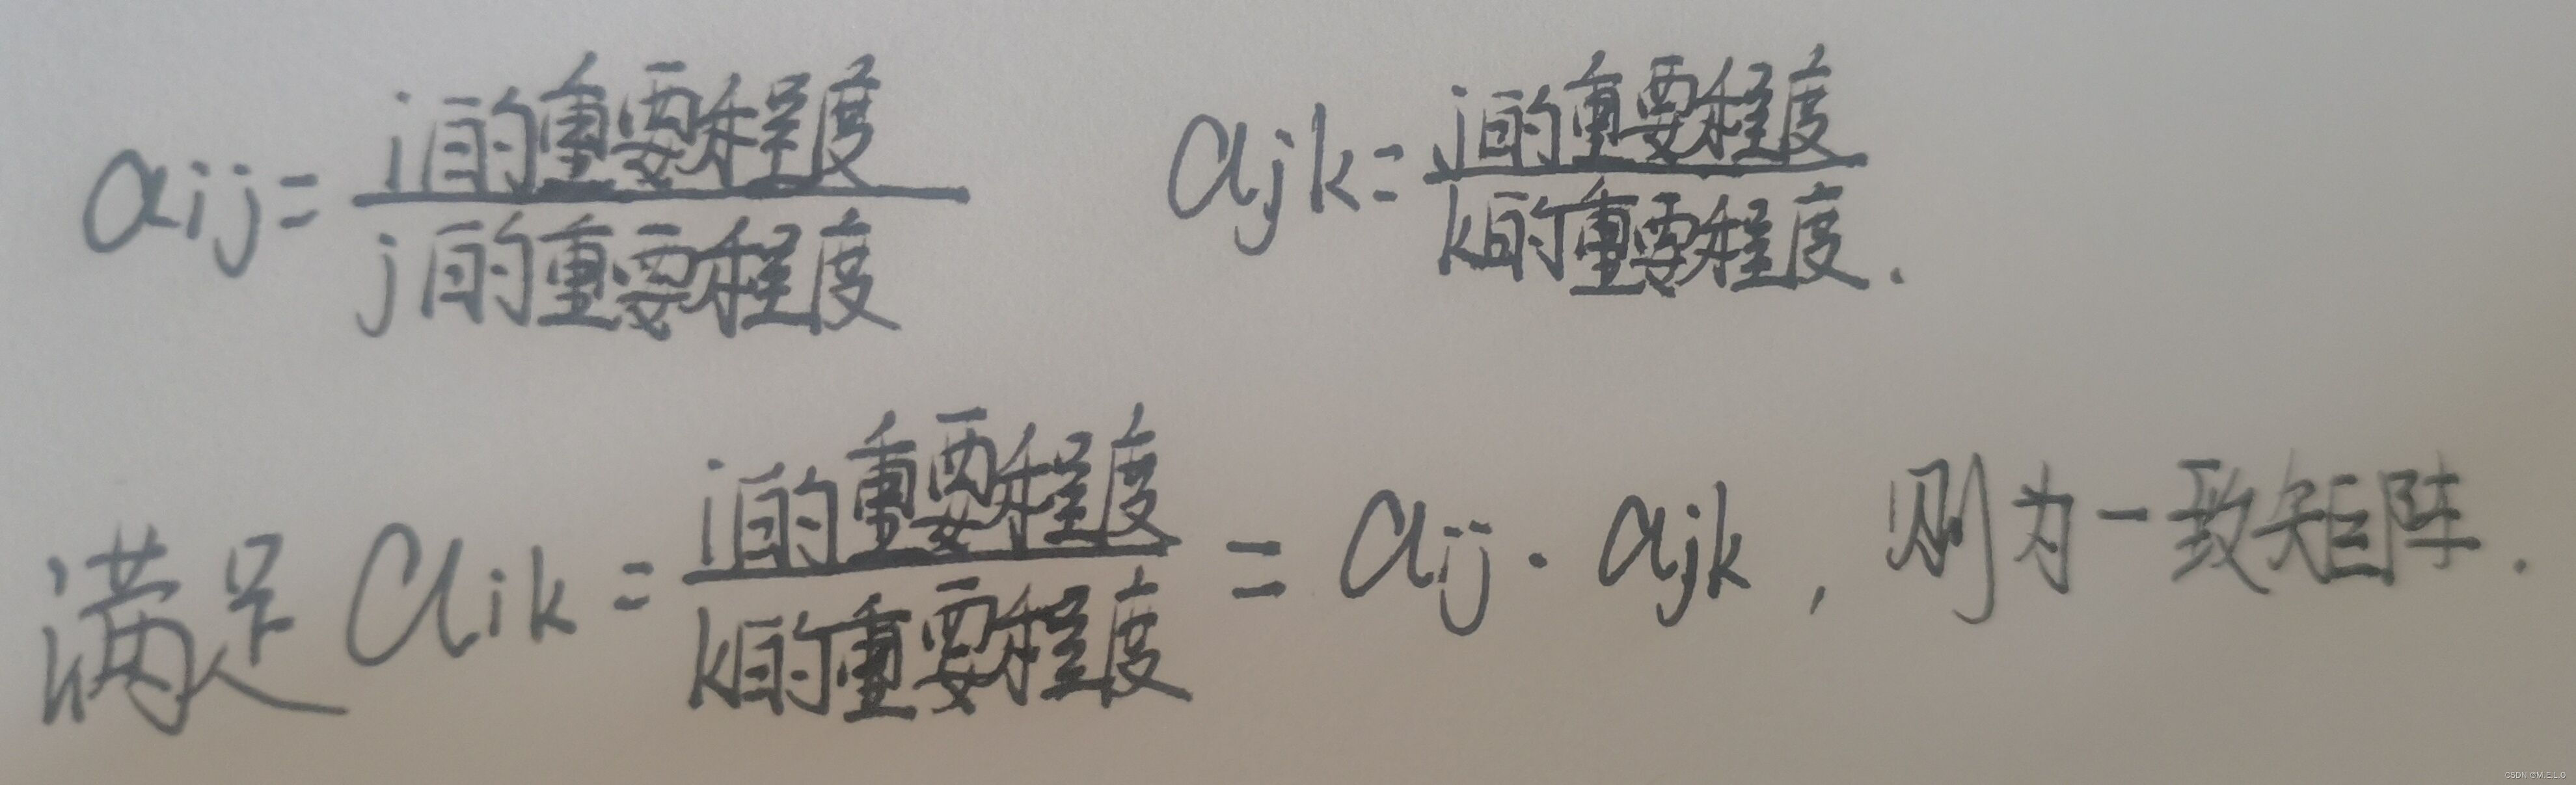 aij = i的重要程度 / j的重要程度  ajk = j的重要程度 / k的重要程度.
满足 aik = i的重要程度 / k的重要程度 = aij · ajk, 则为一致矩阵.
CSDN @M.E.L.O